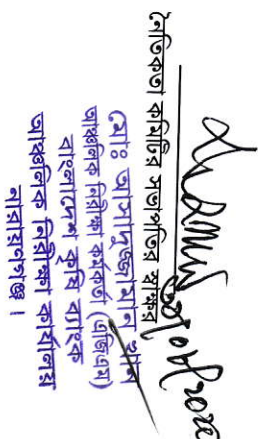 নৈতিকতা কমিটির সভাপতির স্বাক্ষর
মোঃ আসাদুজ্জামান খান
আঞ্চলিক নিরীক্ষা কর্মকর্তা (এজিএম)
বাংলাদেশ কৃষি ব্যাংক
আঞ্চলিক নিরীক্ষা কার্যালয়
নারায়ণগঞ্জ।